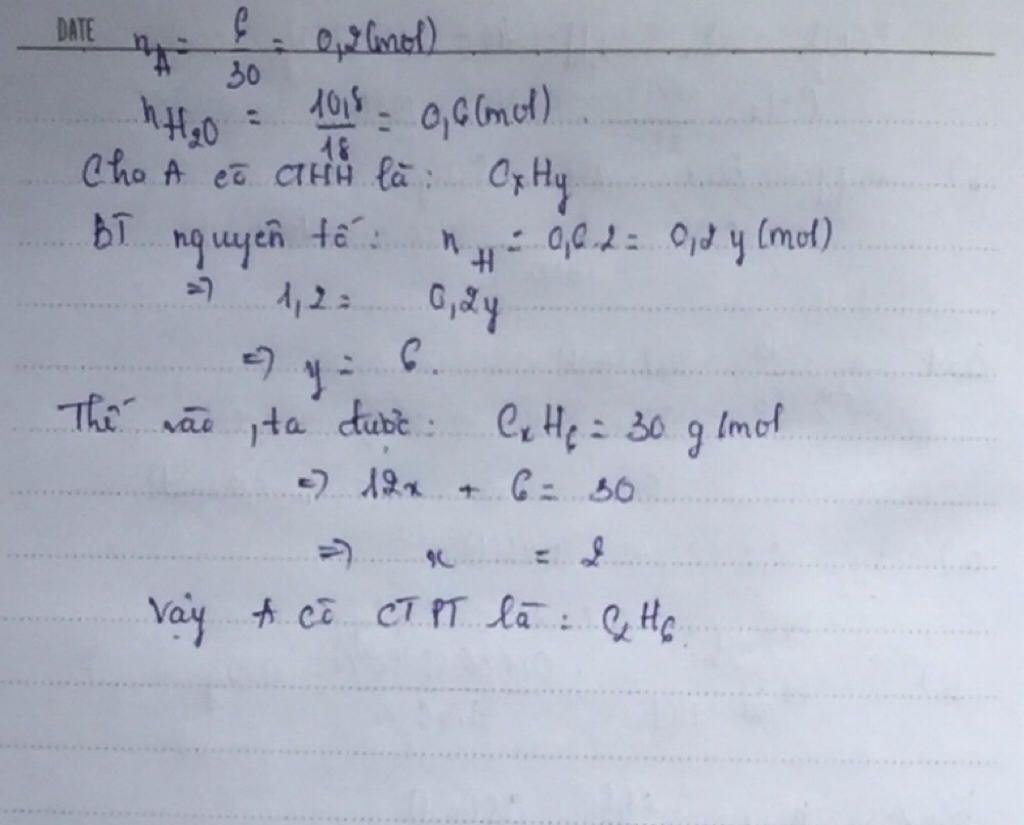 DATE n_A = 6/30 = 0,2(mol)
n_H₂O = 10,8/18 = 0,6(mol)
Cho A có CTHH là: CₓHy
BT nguyên tố: n_H = 0,6.2 = 0,2y(mol)
=> 1,2 = 0,2y
=> y = 6.
Thế vào, ta được: CₓH₆ = 30 g/mol
=> 12x + 6 = 30
=> x = 2
Vậy A có CTPT là: C₂H₆.